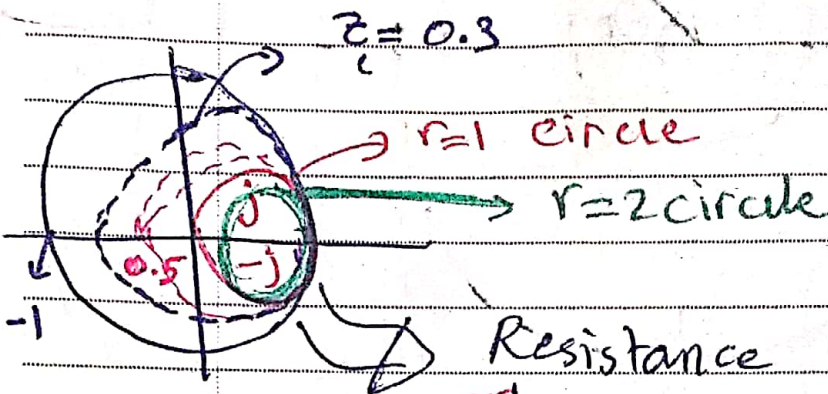 z = 0.3
r=1 circle
r=2 circule
j
0.5
-j
-1
Resistance